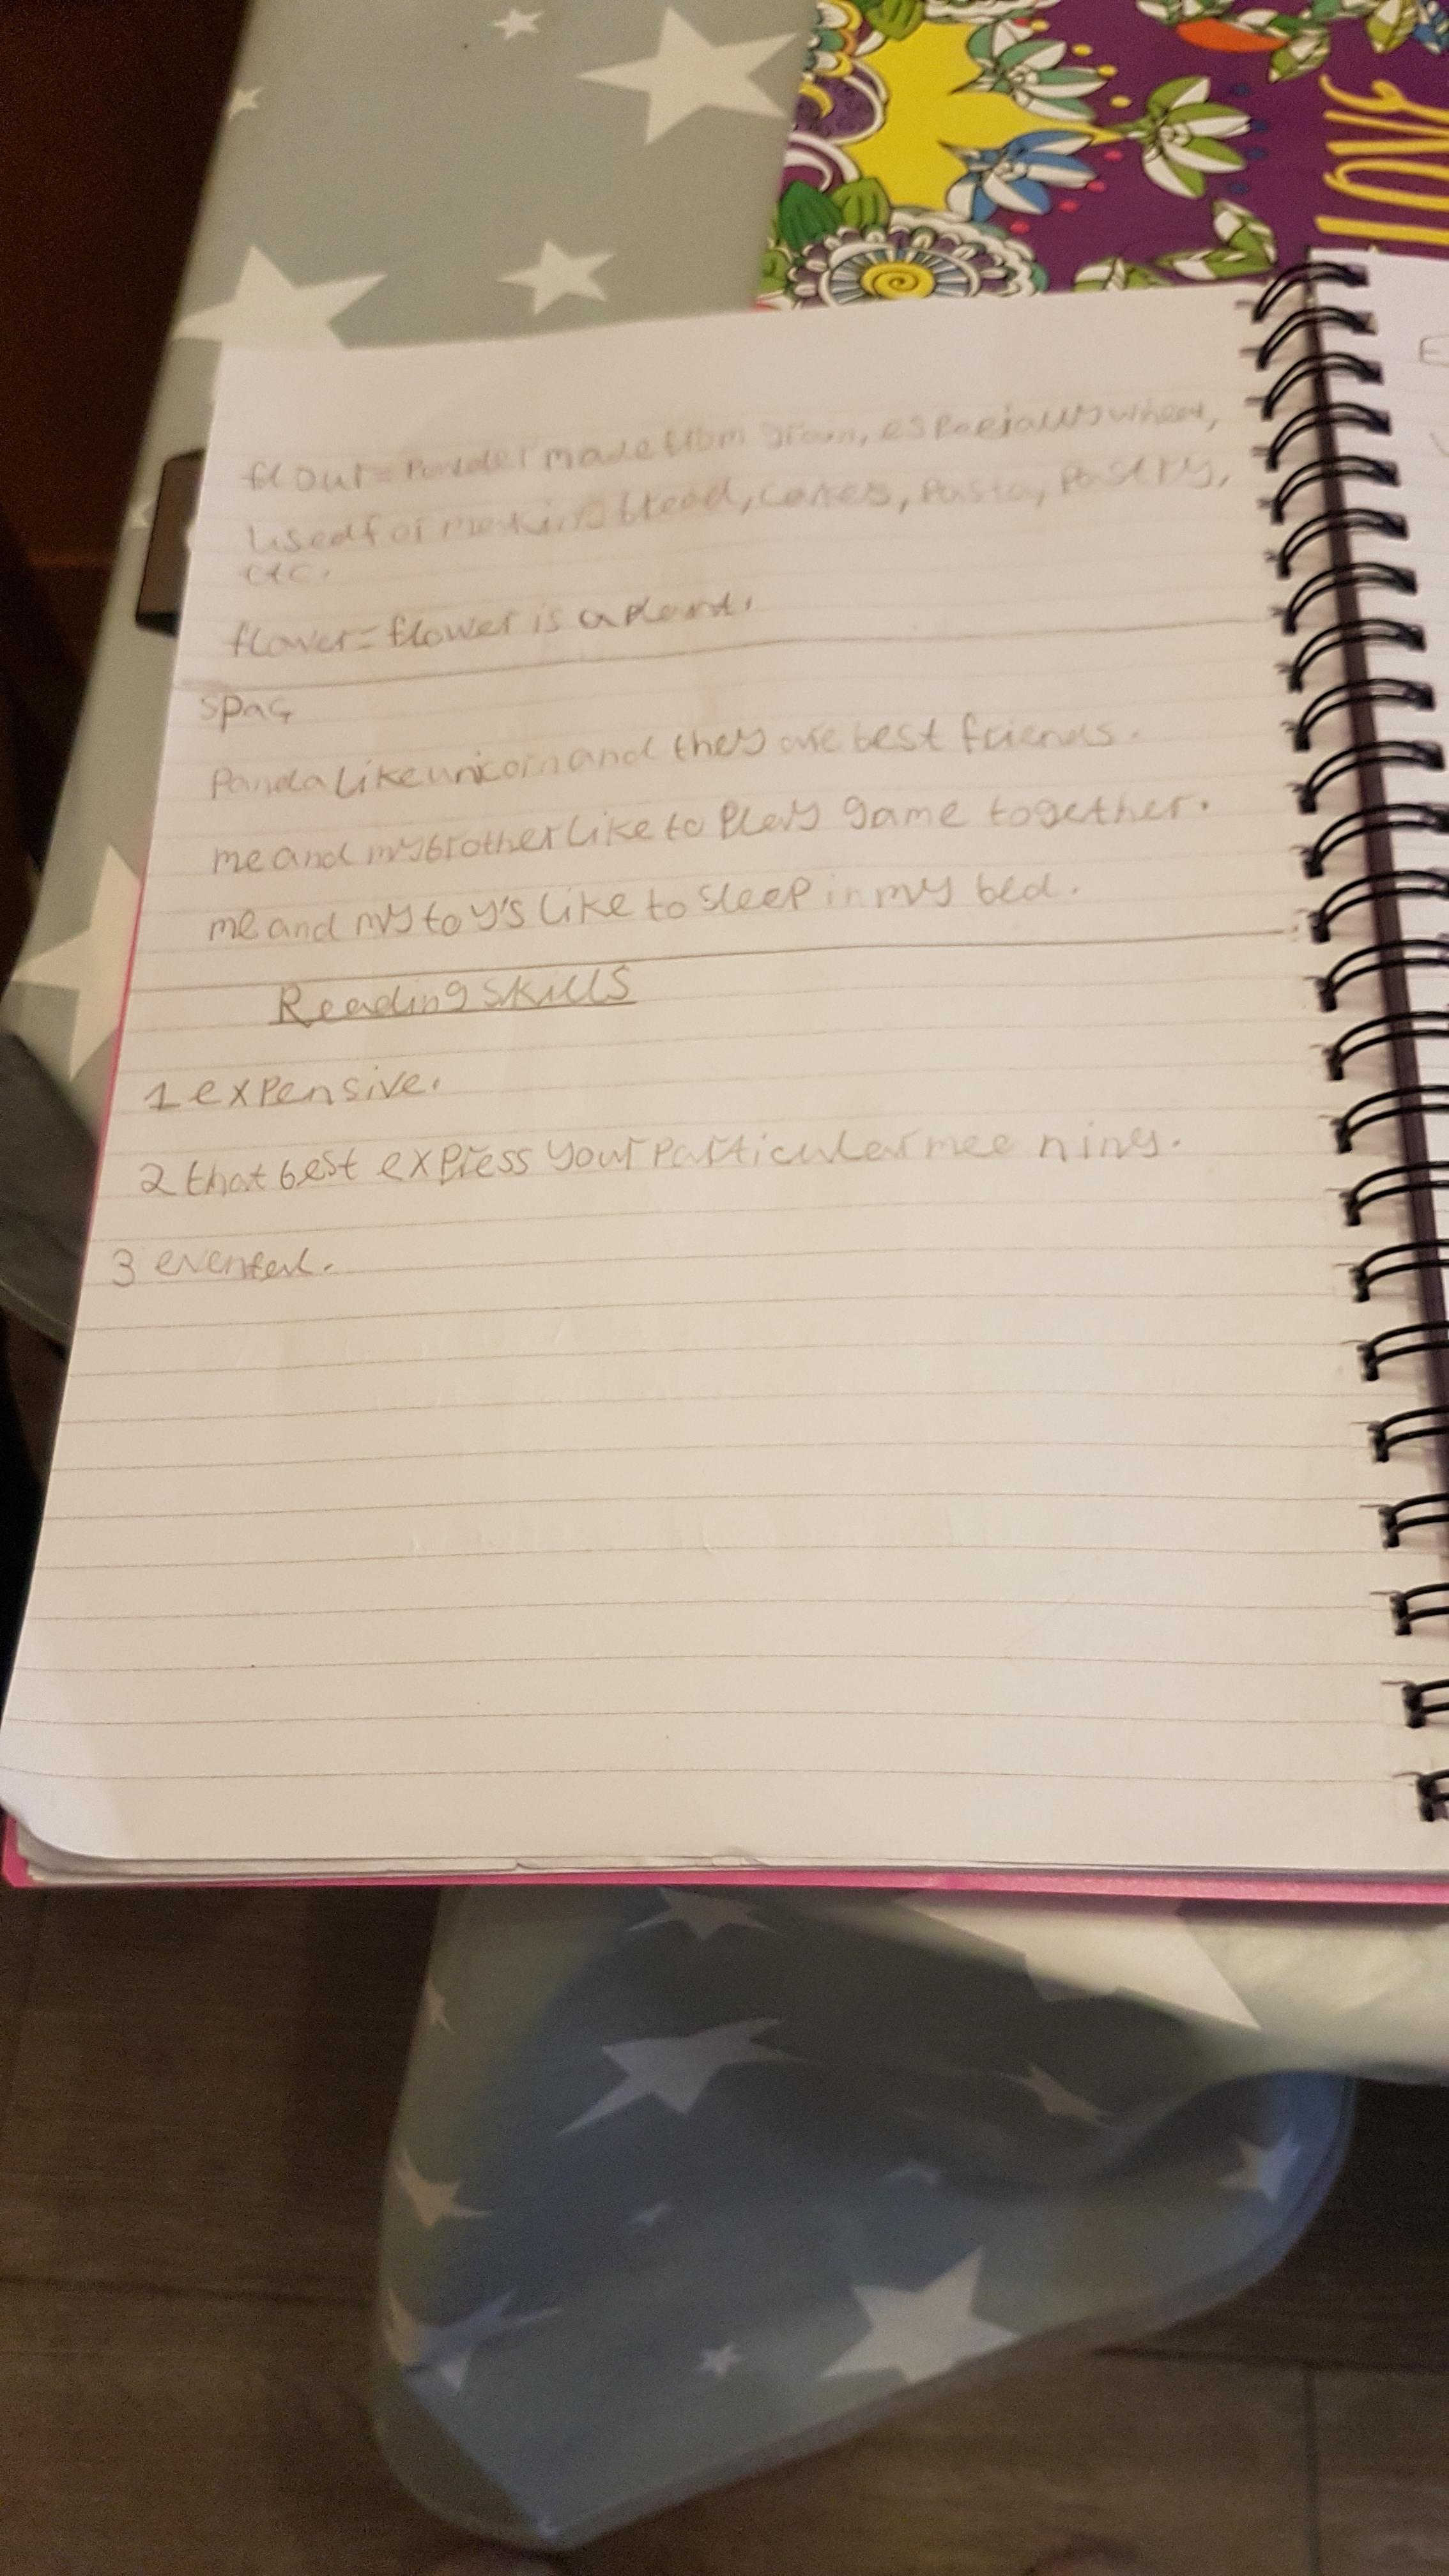 LOVE
flour = Powder made from grain, especially wheat,
Used for making bread, cakes, Pasta, Pastry,
etc.
flower = flower is a plant.
SPaG
Panda like unicorn and they are best friends.
me and my brother like to Play game together.
me and my toy's like to sleep in my bed.
Reading skills
1 expensive.
2 that best express your particular mee ning.
3
E